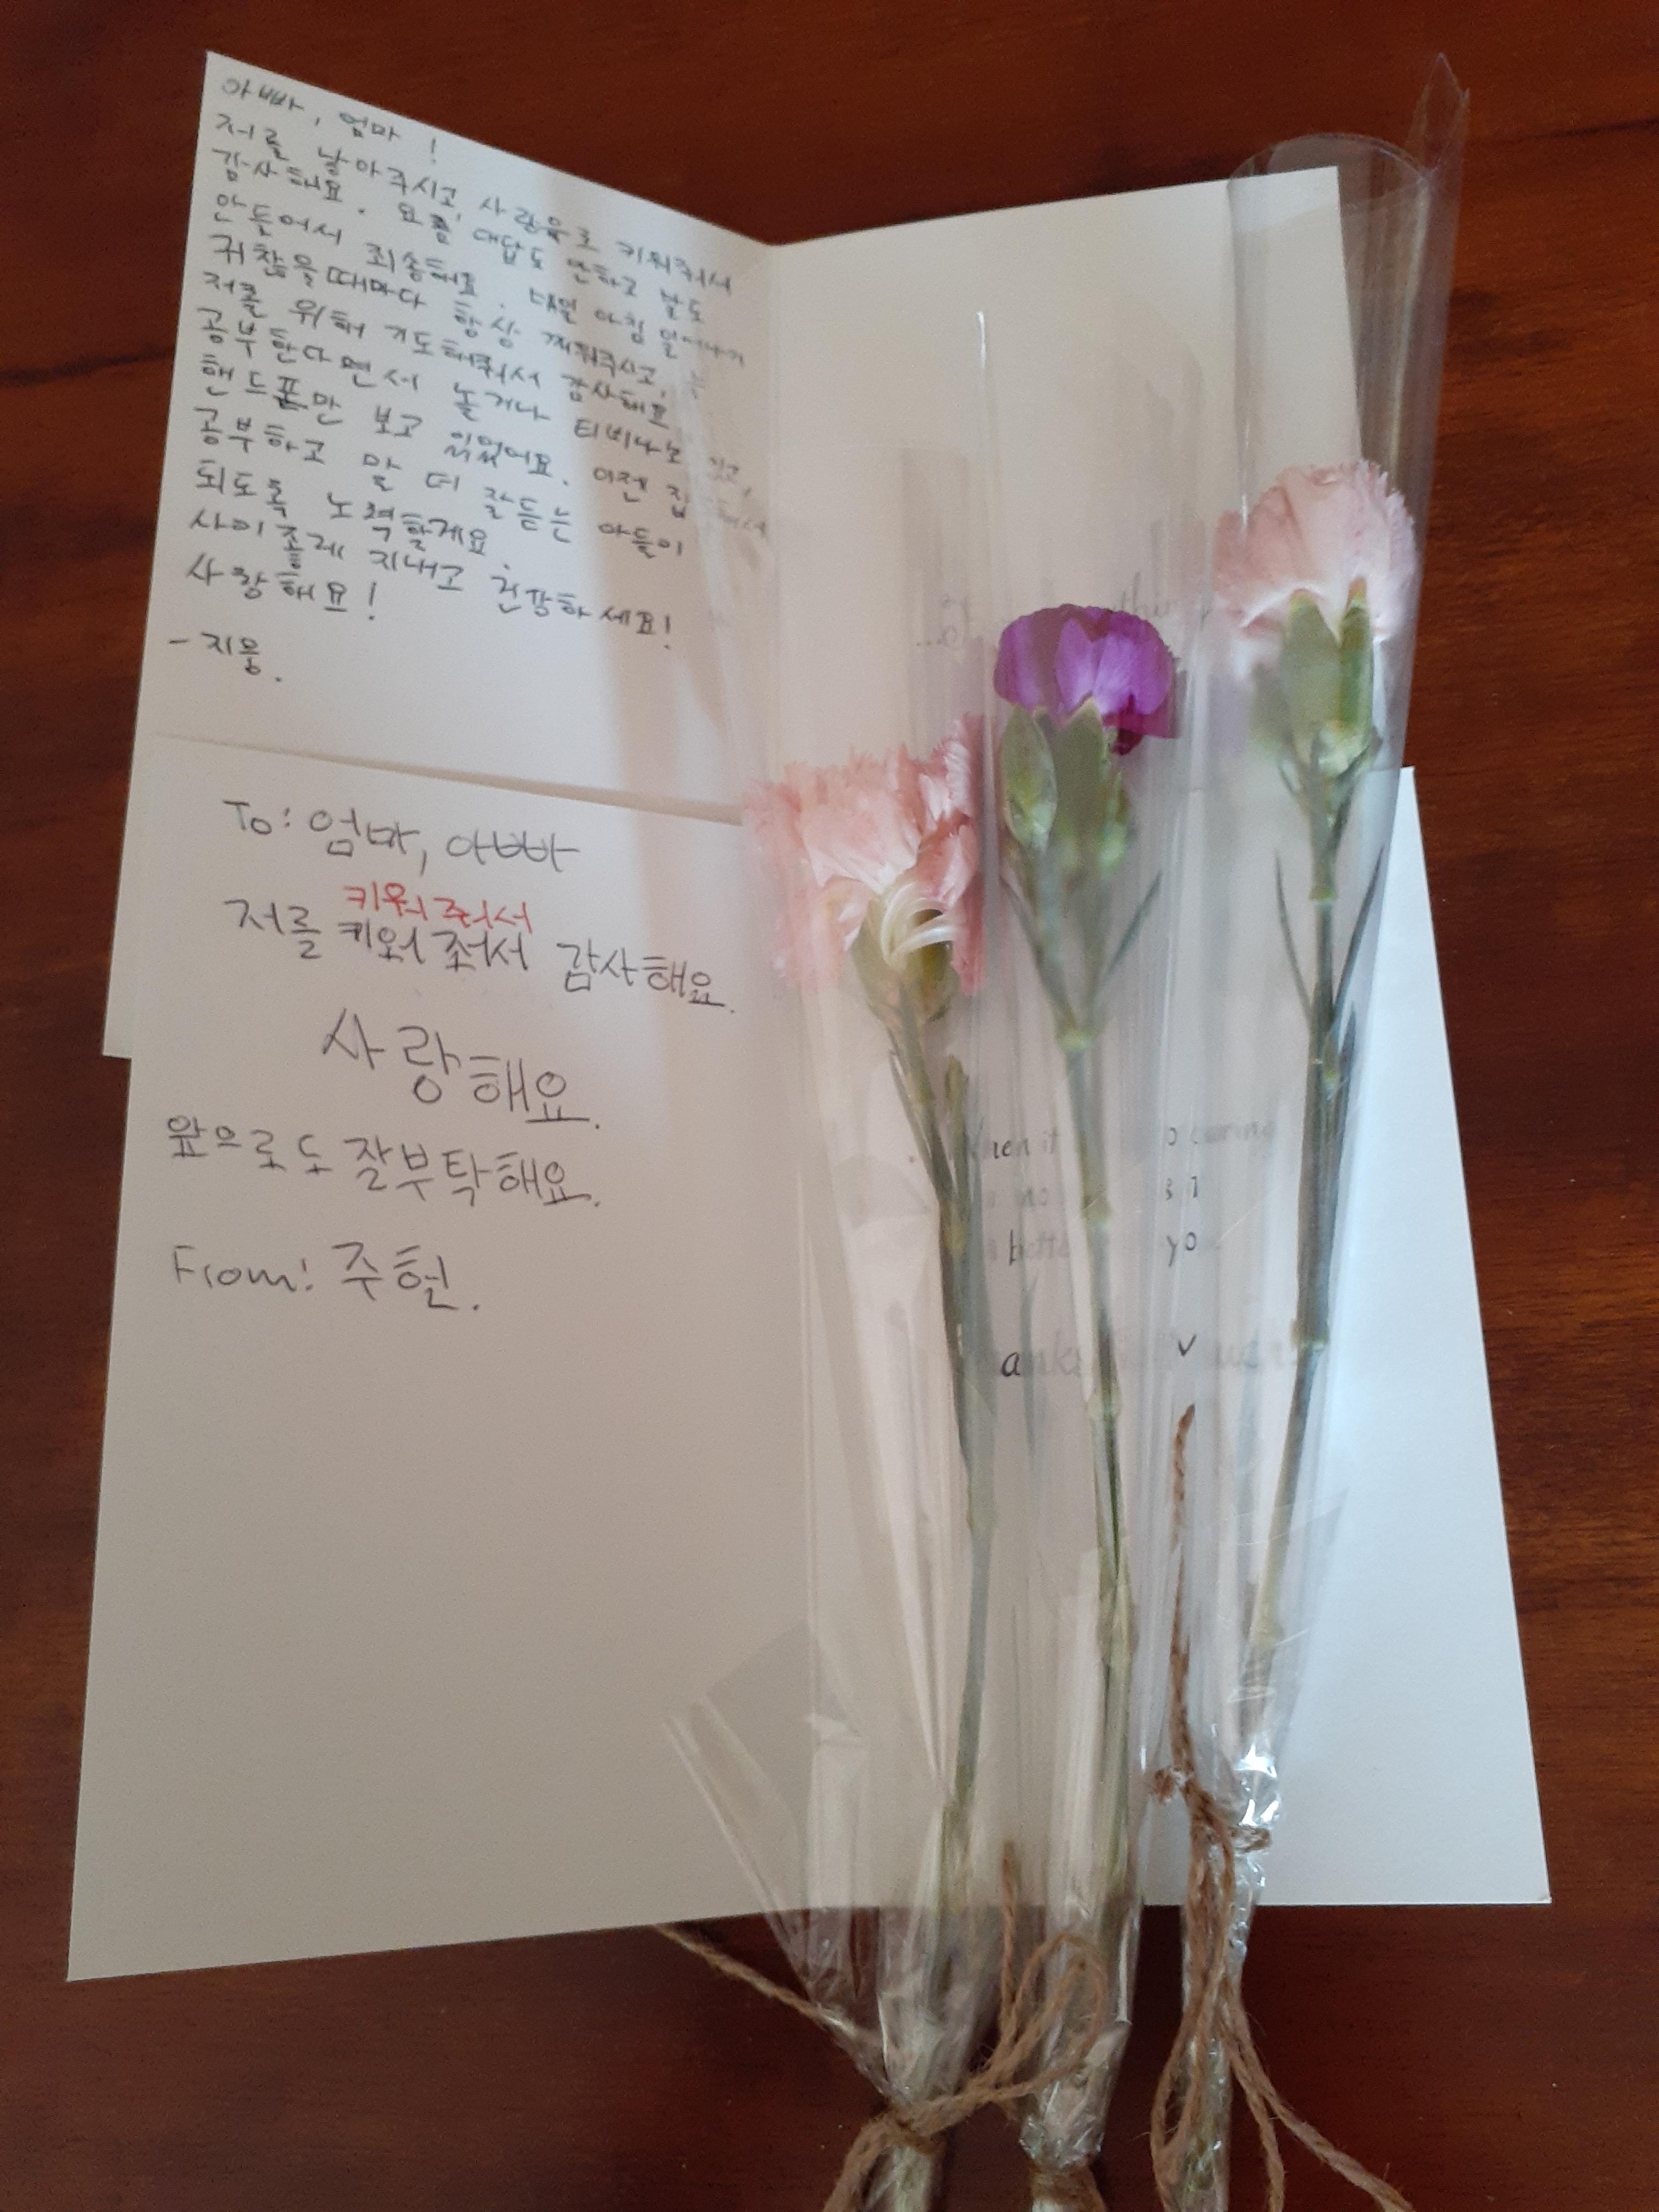 아빠, 엄마!
저를 낳아주시고, 사랑으로 키워줘서
감사해요. 요즘 대답도 안하고 말도
안들어서 죄송해요. 매일 아침 일어나기
귀찮을때마다 항상 깨워주시고,
저를 위해 기도해줘서 감사해요
공부한다면서 놀거나 티비나
핸드폰만 보고 있었어요. 이젠 집
공부하고 말 더 잘듣는 아들이
되도록 노력할게요
사이좋게 지내고 건강하세요!
사랑해요!
- 지웅.
To: 엄마, 아빠
키워줘서
저를 키워줘서 감사해요.
사랑해요.
앞으로도 잘부탁해요.
From: 주헌.